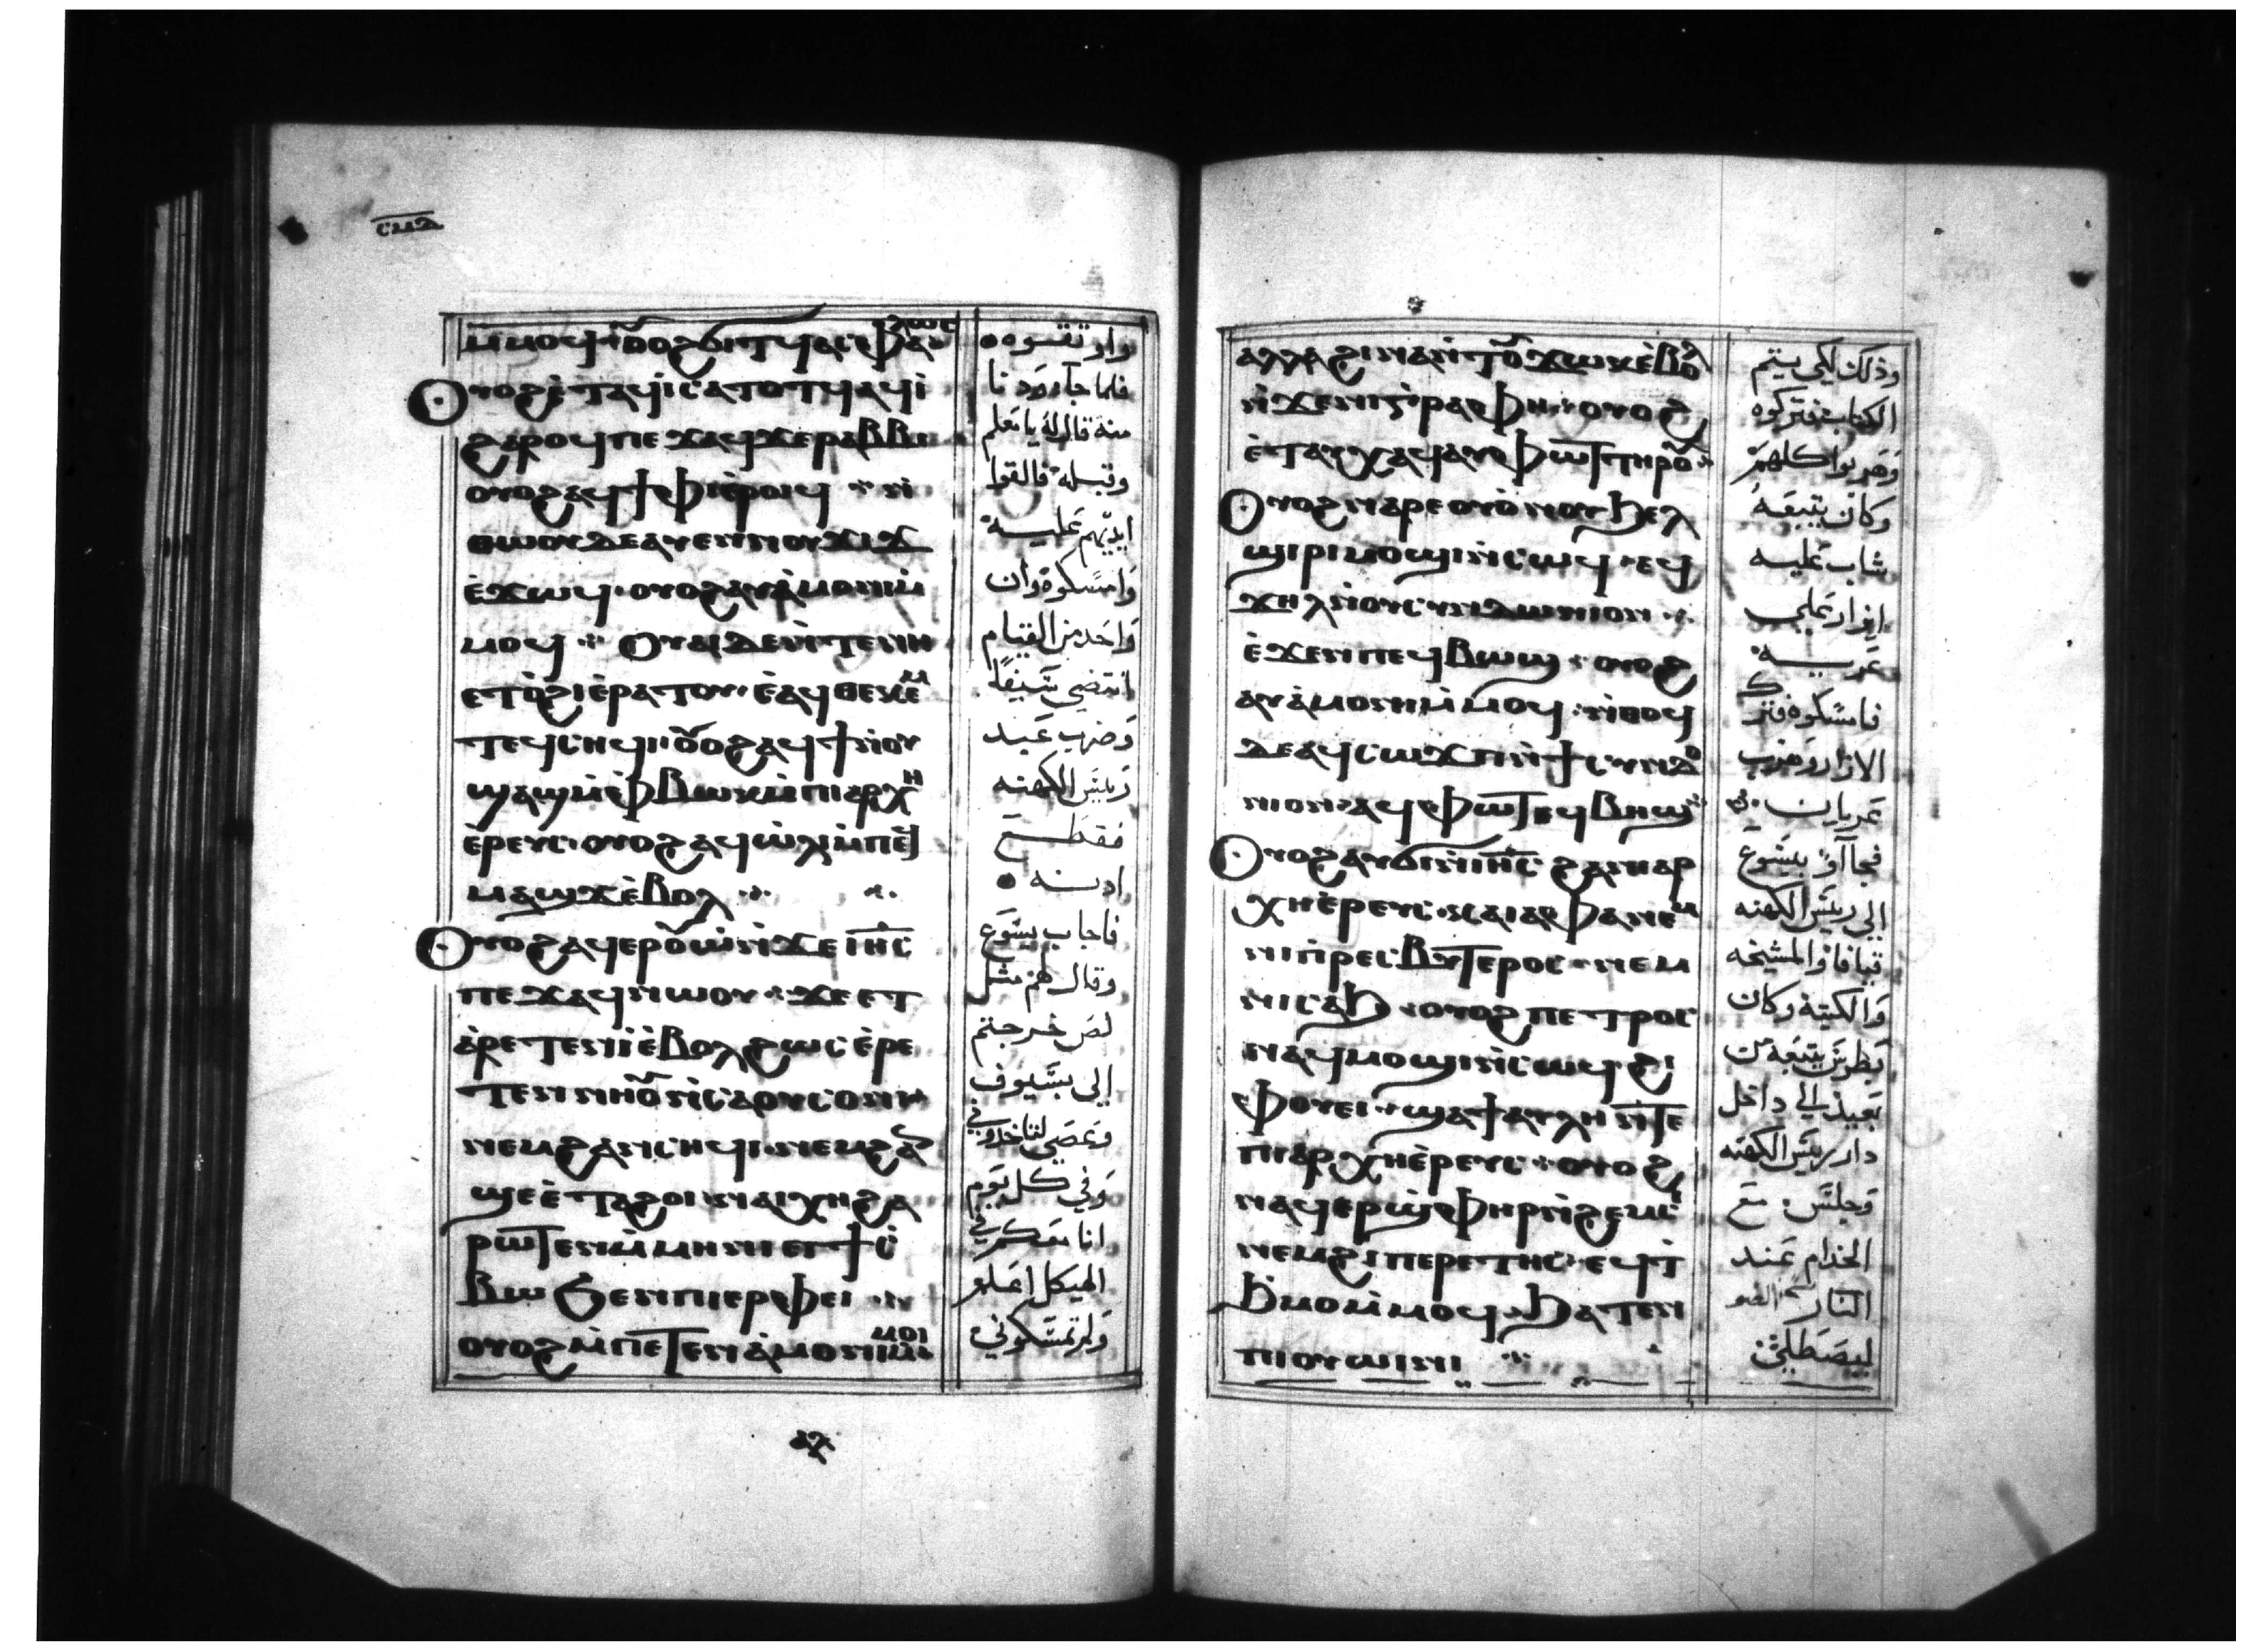 ⲙ̀ⲙⲟϥ ⲟⲩⲟϩ ϭⲓⲧϥ ϧⲉⲛ ⲟⲩⲁⲥⲫⲁⲗⲱⲥ
ⲟⲩⲟϩ ⲉ̀ⲧⲁϥⲓ̀ ⲥⲁⲧⲟⲧϥ ⲁϥⲓ̀
ϩⲁⲣⲟϥ ⲡⲉϫⲁϥ ϫⲉ ⲣⲁⲃⲃⲓ
ⲟⲩⲟϩ ⲁϥϯⲫⲓ ⲉ̀ⲣⲱϥ
ⲛ̀ⲑⲱⲟⲩ ⲇⲉ ⲁⲩⲉⲛ ⲛⲟⲩϫⲓϫ
ⲉ̀ϫⲱϥ ⲟⲩⲟϩ ⲁⲩⲁ̀ⲙⲟⲛⲓ ⲙ̀
ⲙⲟϥ ⲟⲩⲁⲓ ⲇⲉ ⲛ̀ⲧⲉ ⲛⲏ
ⲉⲧⲟ̀ϩⲓ ⲉ̀ⲣⲁⲧⲟⲩ ⲉ̀ⲁϥⲑⲉⲕⲉⲙ
ⲧⲉϥⲥⲏϥⲓ ⲟⲩⲟϩ ⲁϥϯ ⲛ̀ⲟⲩ
ϣⲁϣ ⲙ̀ⲫⲃⲱⲕ ⲙ̀ⲡⲓⲁⲣⲭⲏ
ⲉ̀ⲣⲉⲩⲥ ⲟⲩⲟϩ ⲁϥⲱ̀ⲗⲓ ⲙ̀ⲡⲉϥ
ⲙⲁϣϫ ⲉ̀ⲃⲟⲗ
ⲟⲩⲟϩ ⲁϥⲉⲣⲟⲩⲱ̀ ⲛ̀ϫⲉ ⲓⲏⲥ
ⲡⲉϫⲁϥ ⲛⲱⲟⲩ ϫⲉ ⲉⲧ
ⲁ̀ⲣⲉⲧⲉⲛⲓ̀ ⲉ̀ⲃⲟⲗ ϩⲱⲥ ⲉ̀ⲣⲉ
ⲧⲉⲛ ⲛⲏⲟⲩ ⲛ̀ⲥⲁ ⲟⲩⲥⲟⲛⲓ
ⲛⲉⲙ ϩⲁⲛⲥⲏϥⲓ ⲛⲉⲙ ϩⲁⲛ
ϣⲉ ⲉ̀ⲧⲁϩⲟⲓ ⲛⲁⲓⲭⲏ ϩⲁ
ⲣⲱⲧⲉⲛ ⲙ̀ⲙⲏⲛⲓ ⲉⲓϯⲥ̀
ⲃⲱ ϧⲉⲛ ⲡⲓⲉⲣⲫⲉⲓ
ⲟⲩⲟϩ ⲙ̀ⲡⲉⲧⲉⲛⲁ̀ⲙⲟⲛⲓ ⲙ̀ⲙⲟⲓ
فلما جا ودنا
منه قال له يا معلم
وقبله فالقوا
ايديهم عليه
وامسكوه وان
واحد من القيام
انتضي سيفا
وضرب عبد
رييس الكهنه
فقطع
ادنه
فاجاب يسوع
وقال لهم مثل
لص خرجتم
الي بسيوف
وعصي لتاخدوني
وفي كل يوم
انا معكم في
الهيكل اعلم
ولم تمسكوني
ⲁⲗⲗⲁ ϩⲓⲛⲁ ⲛ̀ⲧⲟⲩϫⲱⲕ ⲉ̀ⲃⲟⲗ
ⲛ̀ϫⲉ ⲛⲓⲅ̀ⲣⲁⲫⲏ ⲟⲩⲟϩ
ⲉ̀ⲧⲁⲩⲭⲁϥ ⲁⲩⲫⲱⲧ ⲧⲏⲣⲟⲩ
ⲟⲩⲟϩ ⲛⲁⲣⲉ ⲟⲩⲟⲛ ⲟⲩϧⲉⲗ
ϣⲓⲣⲓ ⲙⲟϣⲓ ⲛ̀ⲥⲱϥ ⲉϥ
ϫⲏⲗ ⲛ̀ⲟⲩⲥⲩⲛⲇⲱⲛⲓⲟⲛ
ⲉ̀ϫⲉⲛ ⲡⲉϥⲃⲱϣ ⲟⲩⲟϩ
ⲁⲩⲁ̀ⲙⲟⲛⲓ ⲙ̀ⲙⲟϥ ⲛ̀ⲑⲟϥ
ⲇⲉ ⲁϥⲥⲱϫⲡ ⲛ̀ϯⲥⲩⲛⲇⲟ
ⲛⲓⲟⲛ ⲁϥⲫⲱⲧ ⲉϥⲃⲏϣ
ⲟⲩⲟϩ ⲁⲩϭⲓ ⲛ̀ⲓⲏⲥ ϩⲁ ⲡⲓⲁⲣ
ⲭⲏⲉ̀ⲣⲉⲩⲥ ⲕⲁⲓⲁⲫⲁ ⲛⲉⲙ
ⲛⲓⲡ̀ⲣⲉⲥⲃⲩⲧⲉⲣⲟⲥ ⲛⲉⲙ
ⲛⲓⲥⲁϧ ⲟⲩⲟϩ ⲡⲉⲧⲣⲟⲥ
ⲛⲁϥⲙⲟϣⲓ ⲛ̀ⲥⲱϥ ϩⲓ
ⲫⲟⲩⲉⲓ ϣⲁ ϯⲁⲩⲗⲏ ⲛ̀ⲧⲉ
ⲡⲓⲁⲣⲭⲏⲉ̀ⲣⲉⲩⲥ ⲟⲩⲟϩ
ⲛⲁϥⲉⲣϣ̀ⲫⲏⲣ ⲛ̀ϩⲉⲙⲥⲓ
ⲛⲉⲙ ϩⲩⲡⲉⲣⲉⲧⲏⲥ ⲉϥϯ
ϧ̀ⲙⲟⲙ ⲙ̀ⲙⲟϥ ϧⲁⲧⲉⲛ
ⲡⲓⲟⲩⲱⲓⲛⲓ
وذلك لكي يتم
الكتاب فتركوه
وهربوا كلهم
وكان يتبعه
شاب عليه
ازار علي
عريه
فامسكوه فترك
الازار وهرب
عريان
فجاآو بيسوع
الي رييس الكهنه
قيافا والمشيخه
والكتبة وكان
بطرس يتبعه من
بعيد الي داخل
دار رييس الكهنه
وجلس مع
الخدام عند
ليصطلي